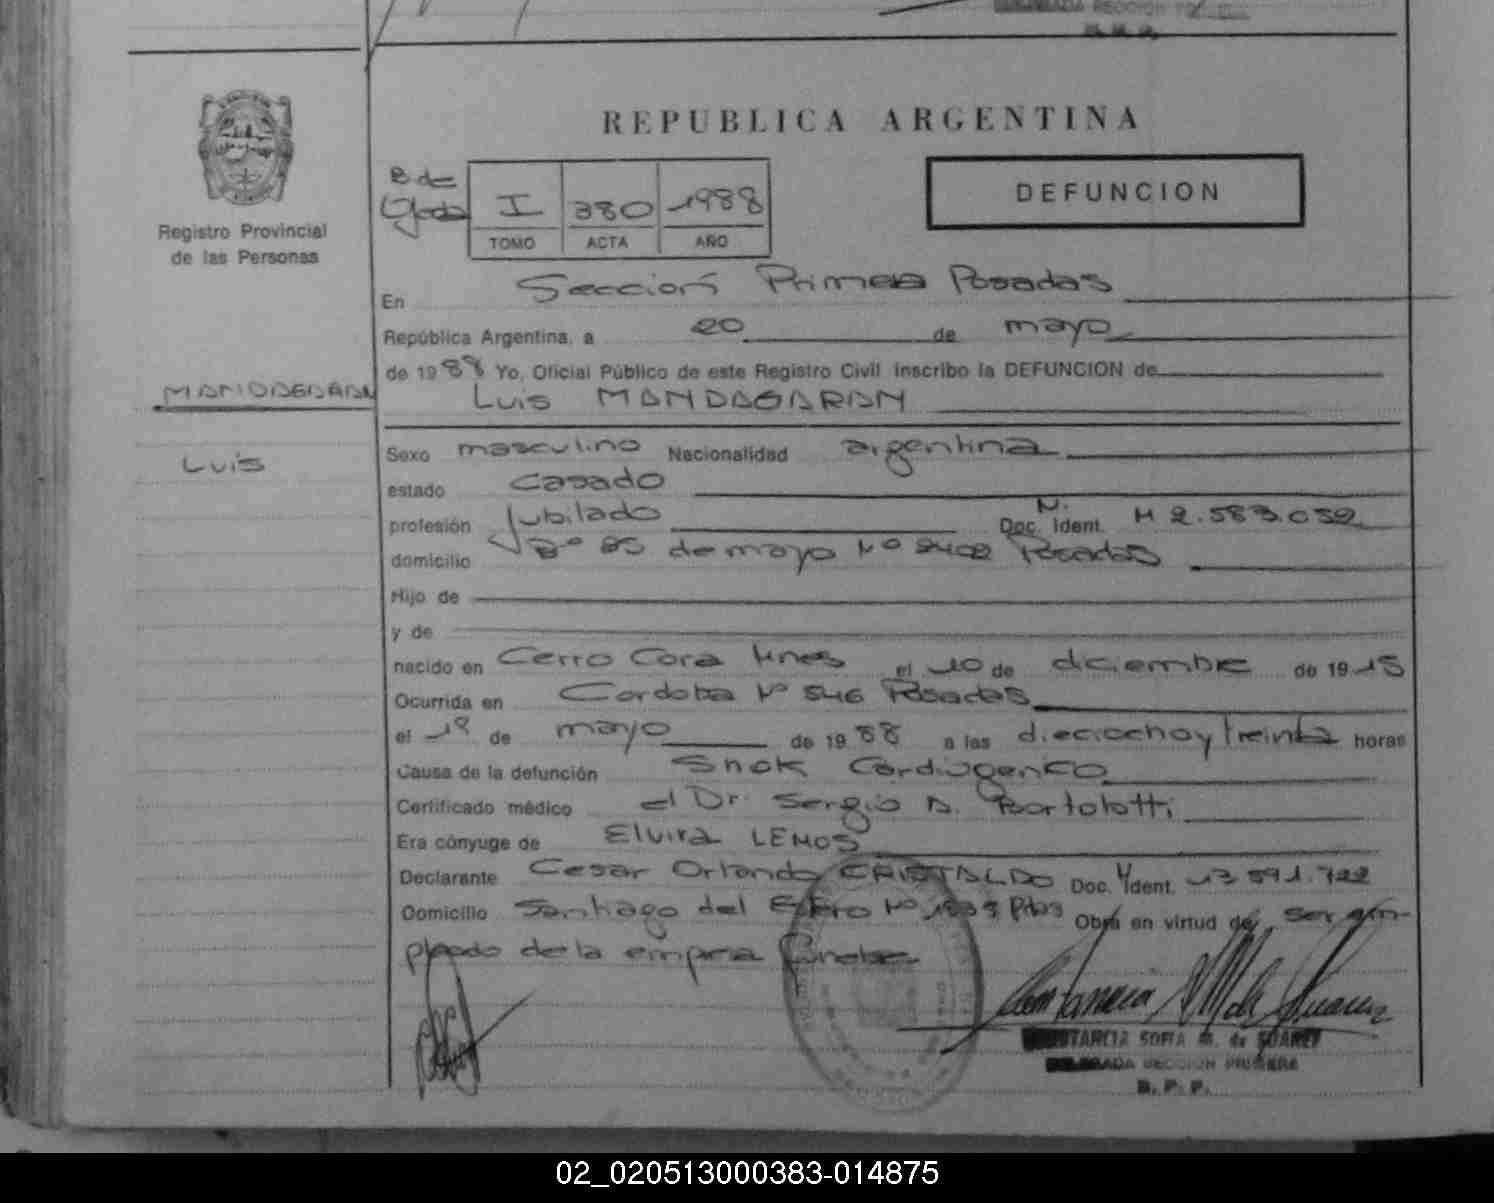 REPUBLICA ARGENTINA
B de
I 380 1988
TOMO ACTA AÑO
DEFUNCION
Registro Provincial
de las Personas
En Sección Primera Posadas
República Argentina, a 20 de mayo
de 1988 Yo, Oficial Público de este Registro Civil inscribo la DEFUNCION de
MANDAGARAN
Luis MANDAGARAN
Luis
Sexo masculino Nacionalidad argentina
estado Casado
profesión Jubilado Doc. Ident. M 2.583.052
domicilio Bº 25 de mayo Nº 2402 Posadas
Hijo de
y de
nacido en Cerro Cora Mnes el 10 de diciembre de 1915
Ocurrida en Cordoba Nº 546 Posadas
el de mayo de 1988 a las dieciocho y treinta horas
Causa de la defunción Shok Cardiogenico
Certificado médico el Dr. Sergio A. Bortolotti
Era cónyuge de Elvira LEMOS
Declarante Cesar Orlando CRISTALDO Doc. Ident. 13 591.722
Domicilio Santiago del Estero Nº Pdas Obra en virtud de ser em-
pleado de la empresa funebre
SOFIA M. de SUAREZ
SECCION PRIMERA
R. P. P.
02_020513000383-014875